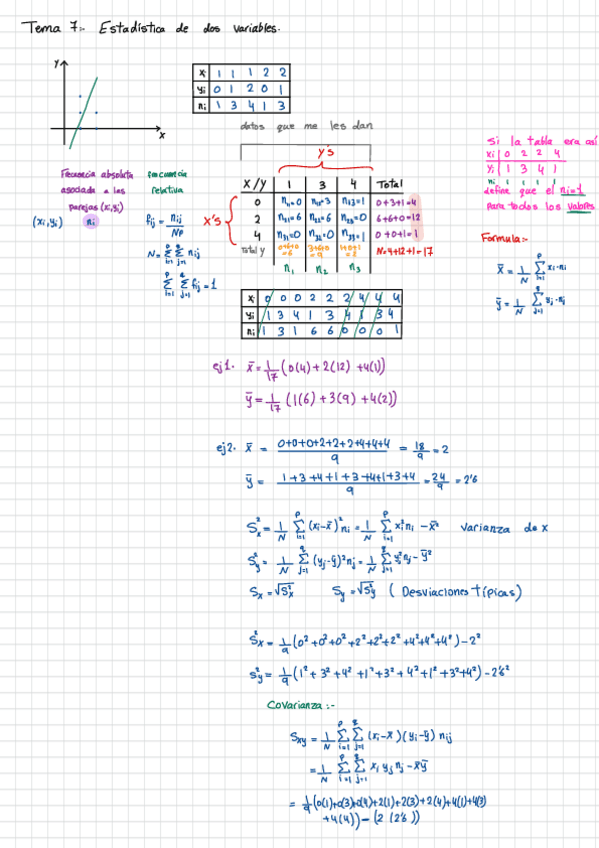 Tema 7:- Estadística de dos variables.
y
x
xi 1 1 1 2 2
yi 0 1 2 0 1
ni 1 3 4 1 3
datos que me les dan
Frecuencia absoluta asociada a las parejas (xi,yi)
(xi,yi) ni
frecuencia relativa
fij = nij/Np
N = Σ(i=1→p) Σ(j=1→q) nij
Σ(i=1→p) Σ(j=1→q) fij = 1
Y's
X's
X/Y 1 3 4 Total
0 n11=0 n12=3 n13=1 0+3+1=4
2 n21=6 n22=6 n23=0 6+6+0=12
4 n31=0 n32=0 n33=1 0+0+1=1
Total y 0+6+0=6 3+6+0=9 1+0+1=2 N=4+12+1=17
n1 n2 n3
Si la tabla era así
xi 0 2 2 4
yi 1 3 4 1
ni 1 1 1 1
define que el ni=1
para todos los valores
Formula:-
x̄ = 1/N Σ(i=1→p) xi·ni
ȳ = 1/N Σ(j=1→q) yj·nj
xi 0 0 0 2 2 2 4 4 4
yi 1 3 4 1 3 4 1 3 4
ni 1 3 1 6 6 0 0 0 1
ej1. x̄ = 1/17 (0(4) + 2(12) + 4(1))
ȳ = 1/17 (1(6) + 3(9) + 4(2))
ej2. x̄ = (0+0+0+2+2+2+4+4+4)/9 = 18/9 = 2
ȳ = (1+3+4+1+3+4+1+3+4)/9 = 24/9 = 2'6
S²x = 1/N Σ(i=1→p) (xi-x̄)² ni = 1/N Σ(i=1→p) xi²ni - x̄² varianza de x
S²y = 1/N Σ(j=1→q) (yj-ȳ)² nj = 1/N Σ(j=1→q) yj²nj - ȳ²
Sx = √S²x Sy = √S²y (Desviaciones típicas)
S²x = 1/9 (0²+0²+0²+2²+2²+2²+4²+4²+4²) - 2²
S²y = 1/9 (1²+3²+4²+1²+3²+4²+1²+3²+4²) - 2'6²
Covarianza :-
Sxy = 1/N Σ(i=1→p) Σ(j=1→q) (xi-x̄)(yi-ȳ) nij
= 1/N Σ(i=1→p) Σ(j=1→q) xi yj nj - x̄ȳ
= 1/9 (0(1)+0(3)+0(4)+2(1)+2(3)+2(4)+4(1)+4(3)
+4(4)) - (2 (2'6))